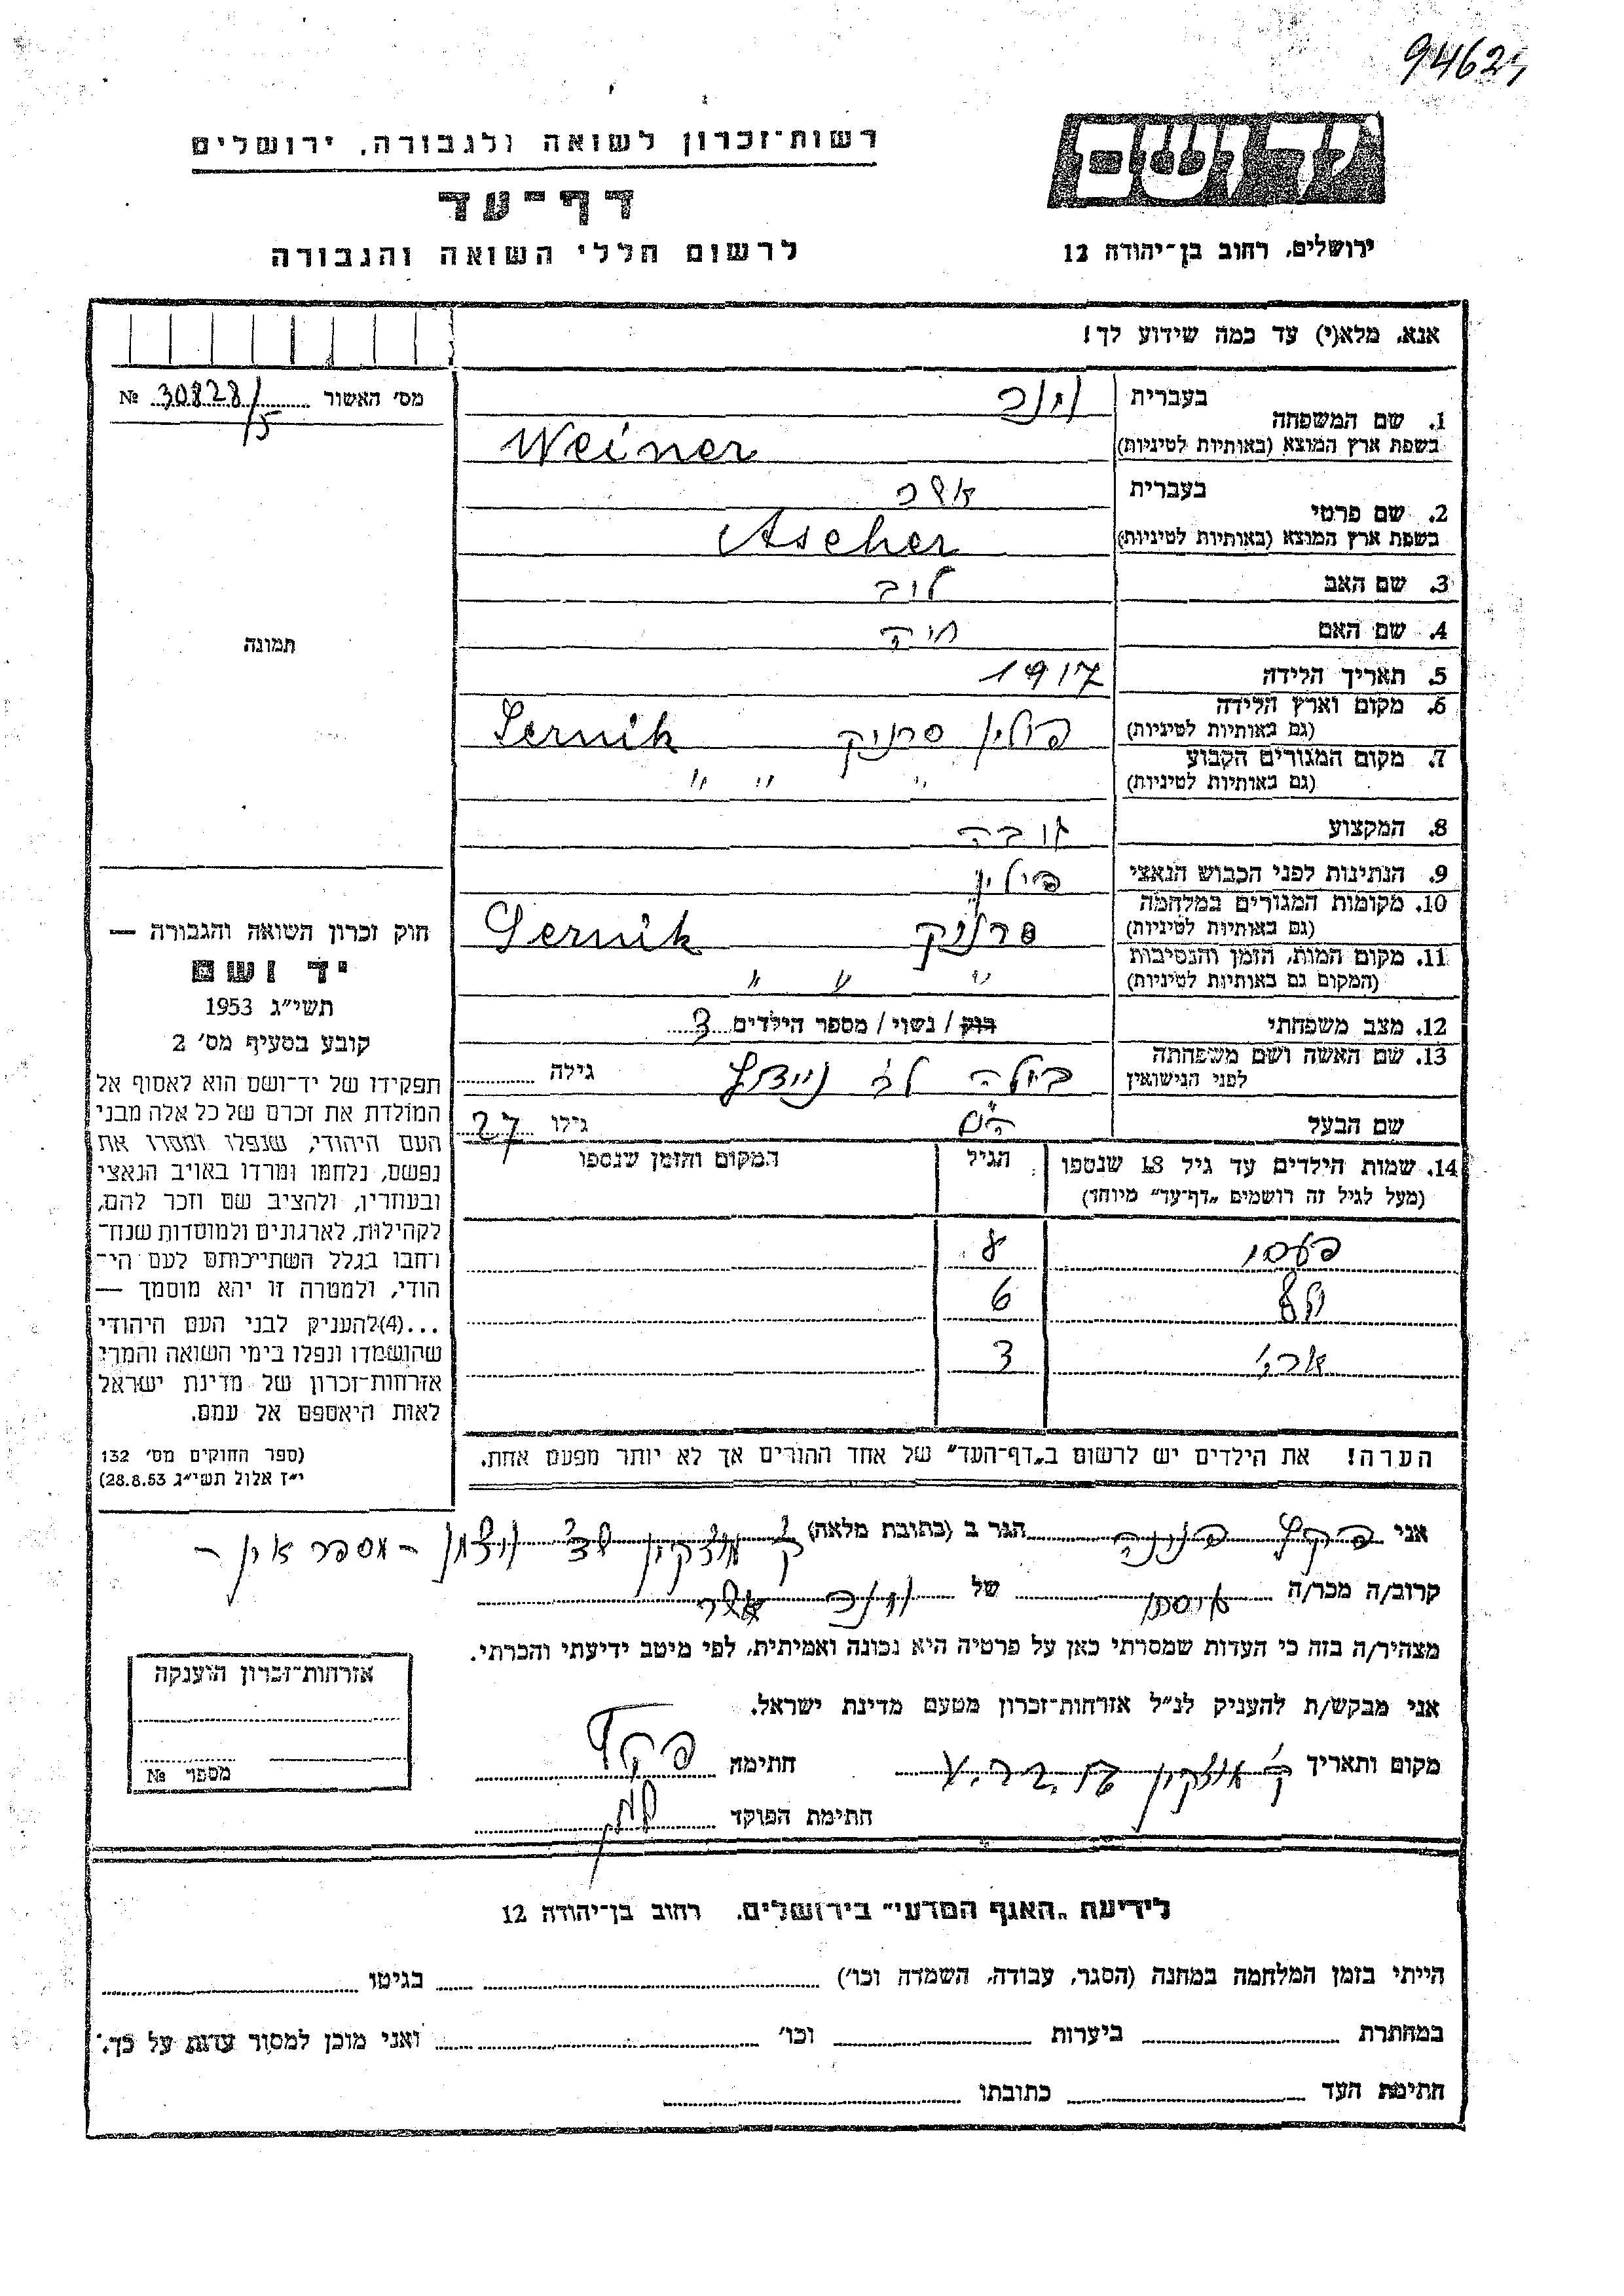 94625
רשות־זכרון לשואה ולגבורה, ירושלים
דף־עד
לרשום חללי השואה והגבורה
יד ושם
ירושלים, רחוב בן־יהודה 12
אנא, מלא(י) עד כמה שידוע לך!
מס׳ האשור № 30828/5
תמונה
1. שם המשפחה בעברית וינר
בשפת ארץ המוצא (באותיות לטיניות) Weiner
2. שם פרטי בעברית אשר
בשפת ארץ המוצא (באותיות לטיניות) Ascher
3. שם האב לוב
4. שם האם חיה
5. תאריך הלידה 1917
6. מקום וארץ הלידה (גם באותיות לטיניות) פולין סרניק Sernik
7. מקום המגורים הקבוע (גם באותיות לטיניות) " " "
8. המקצוע
9. הנתינות לפני הכבוש הנאצי פולין
10. מקומות המגורים במלחמה (גם באותיות לטיניות) סרניק Sernik
11. מקום המות, הזמן והנסיבות (המקום גם באותיות לטיניות) " " "
12. מצב משפחתי רוק / נשוי / מספר הילדים 3
13. שם האשה ושם משפחתה לפני הנישואין ביילה גילה
שם הבעל גילו 27
14. שמות הילדים עד גיל 18 שנספו
(מעל לגיל זה רושמים „דף־עד” מיוחד)
הגיל
המקום והזמן שנספו
8
6
3
הערה! את הילדים יש לרשום ב„דף־העד” של אחד ההורים אך לא יותר מפעם אחת.
חוק זכרון השואה והגבורה —
יד ושם
תשי״ג 1953
קובע בסעיף מס׳ 2
תפקידו של יד־ושם הוא לאסוף אל
המולדת את זכרם של כל אלה מבני
העם היהודי, שנפלו ומסרו את
נפשם, נלחמו ומרדו באויב הנאצי
ובעוזריו, ולהציב שם וזכר להם,
לקהילות, לארגונים ולמוסדות שנח־
רחבו בגלל השתייכותם לעם הי־
הודי, ולמטרה זו יהא מוסמך —
...(4) להעניק לבני העם היהודי
שהושמדו ונפלו בימי השואה והמרי
אזרחות־זכרון של מדינת ישראל
לאות היאספם אל עמם.
(ספר החוקים מס׳ 132
י״ז אלול תשי״ג 28.8.53)
אני הגר ב (כתובת מלאה) ק׳ מוצקין - מספר אין -
קרוב/ה מכר/ה של וינר אשר
מצהיר/ה בזה כי העדות שמסרתי כאן על פרטיה היא נכונה ואמיתית, לפי מיטב ידיעתי והכרתי.
אני מבקש/ת להעניק לנ״ל אזרחות־זכרון מטעם מדינת ישראל.
מקום ותאריך ק׳ מוצקין חתימה
חתימת הפוקד
אזרחות־זכרון הוענקה
מספר №
לידיעת „האגף המדעי” בירושלים, רחוב בן־יהודה 12
הייתי בזמן המלחמה במחנה (הסגר, עבודה, השמדה וכו׳) בגיטו
במחתרת ביערות וכו׳ ואני מוכן למסור עדות על כך.
חתימת העד כתובתו